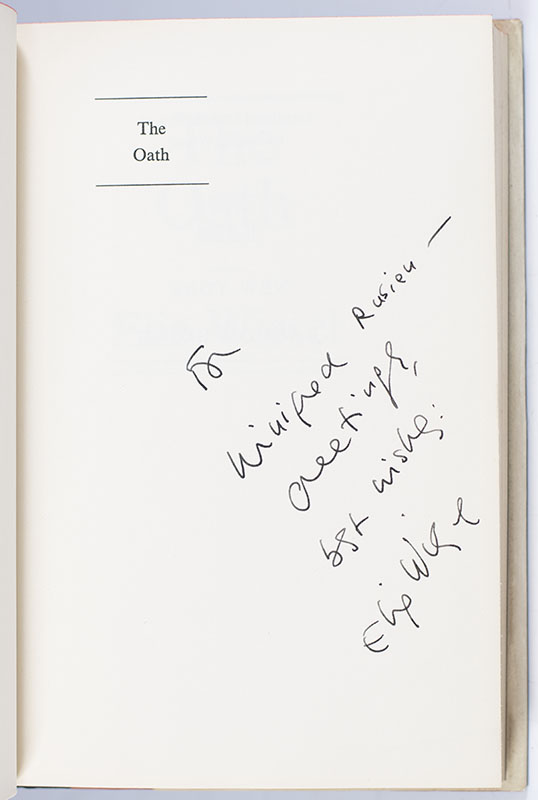 The
Oath
For
Winifred Rusien —
Greetings,
best wishes.
Elie Wiesel